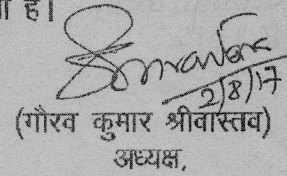 है।
2/8/17
(गौरव कुमार श्रीवास्तव)
अध्यक्ष,